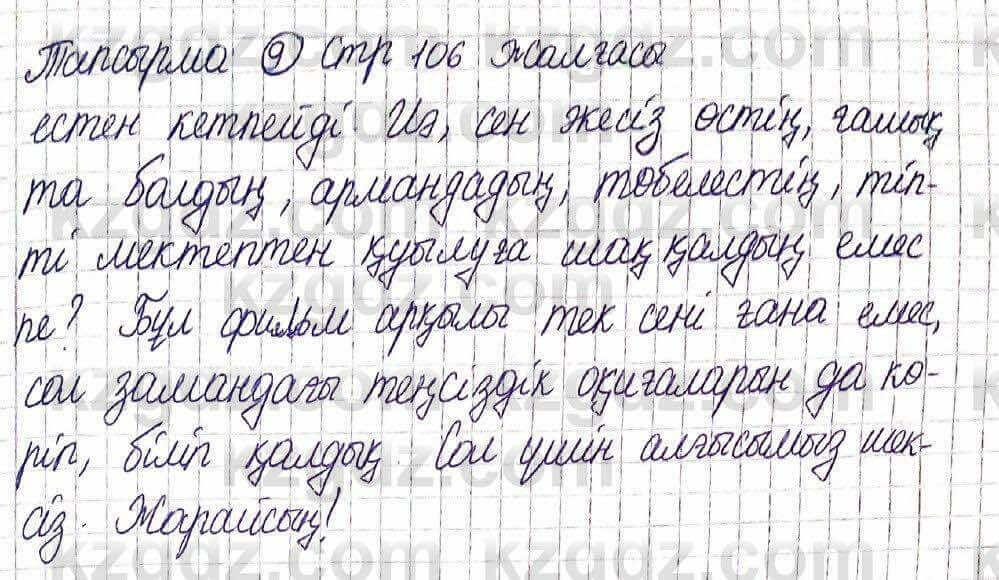 Тапсырма 9 стр 106 жалғасы
естен кетпейді. Иә, сен жесіз өстің, ғашық
та болдың, армандадың, төбелестің, тіп-
ті мектептен қуылуға шақ қалдың емес
пе? Бұл фильм арқылы тек сені ғана емес,
сол замандағы теңсіздік оқиғаларын да кө-
ріп, біліп қалдық. Сол үшін алғысымыз шек-
сіз. Жарайсың!